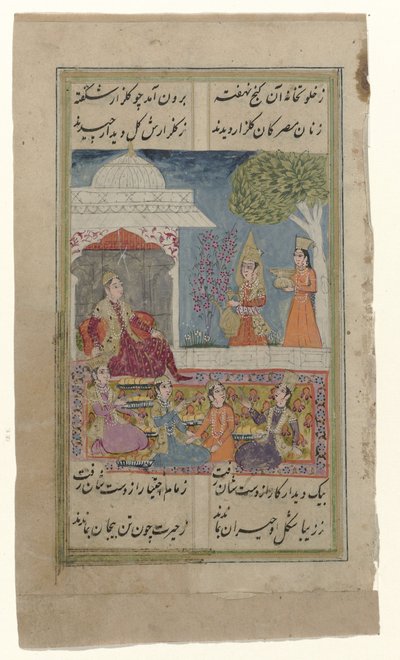 ز خلوتخانه آن گنج نهفته برون آمد چو گلزار شگفته
زنان مصر کان گلزار دیدند ز گلزارش گل دیدار چیدند
بیک دیدار کار از دست شان رفت زمام اختیار از دست شان رفت
ز زیبا شکل او حیران بماندند ز حیرت چون تن بیجان بماندند